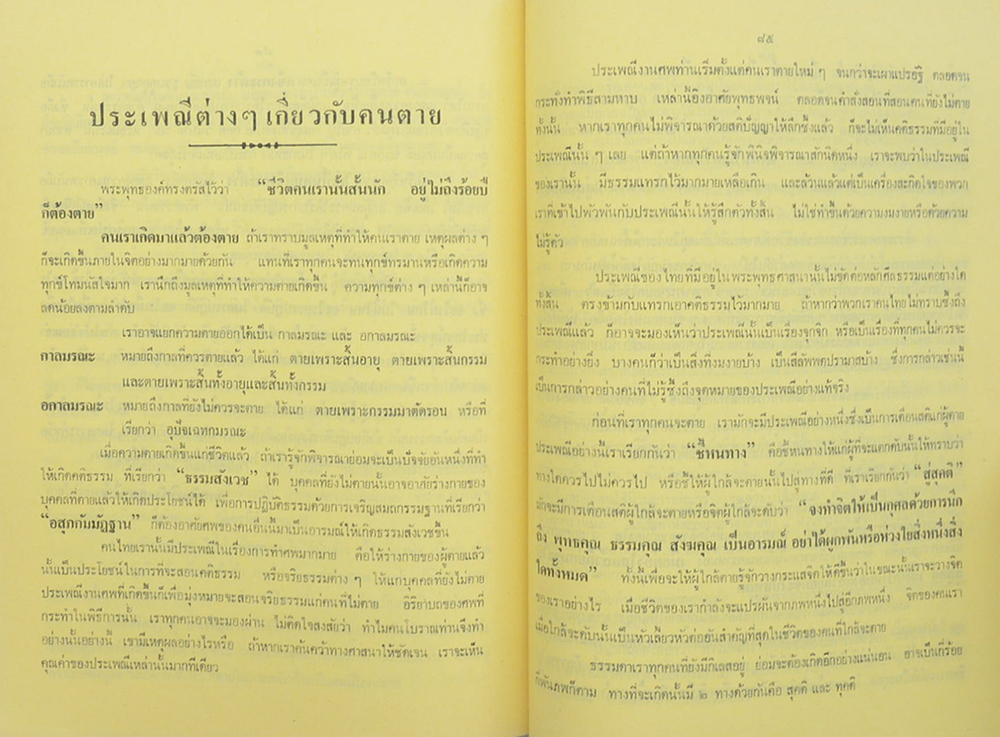 ประเพณีต่างๆ เกี่ยวกับคนตาย
พระพุทธองค์ทรงตรัสไว้ว่า “ชีวิตคนเรานั้นสั้นนัก อยู่ไม่ถึงร้อยปี
ก็ต้องตาย”
คนเราเกิดมาแล้วต้องตาย ถ้าเราทราบมูลเหตุที่ทำให้คนเราตาย เหตุผลต่าง ๆ
ก็จะเกิดขึ้นภายในจิตอย่างมากมายด้วยกัน แทนที่เราทุกคนจะทนทุกข์ทรมานหรือเกิดความ
ทุกข์โทมนัสใจมาก เรานึกถึงมูลเหตุที่ทำให้ความตายเกิดขึ้น ความทุกข์ต่าง ๆ เหล่านี้ก็อาจ
ลดน้อยลงตามลำดับ
เราอาจแยกความตายออกได้เป็น กาลมรณะ และ อกาลมรณะ
กาลมรณะ หมายถึงกาลที่ควรตายแล้ว ได้แก่ ตายเพราะสิ้นอายุ ตายเพราะสิ้นกรรม
และตายเพราะสิ้นทั้งอายุและสิ้นทั้งกรรม
อกาลมรณะ หมายถึงกาลที่ยังไม่ควรจะตาย ได้แก่ ตายเพราะกรรมมาตัดรอน หรือที่
เรียกว่า อุปัจเฉทกมรณะ
เมื่อความตายเกิดขึ้นแก่ชีวิตแล้ว ถ้าเรารู้จักพิจารณาย่อมจะเป็นปัจจัยอันหนึ่งที่ทำ
ให้เกิดคติธรรม ที่เรียกว่า “ธรรมสังเวช” ได้ บุคคลที่ยังไม่ตายนั้นอาจอาศัยร่างกายของ
บุคคลที่ตายแล้วให้เกิดประโยชน์ได้ เพื่อการปฏิบัติธรรมด้วยการเจริญสมถกรรมฐานที่เรียกว่า
“อสุภกัมมัฏฐาน” ก็ต้องอาศัยศพของคนอื่นนี้มาเป็นอารมณ์ให้เกิดธรรมสังเวชขึ้น
คนไทยเรานั้นมีประเพณีในเรื่องการทำศพมากมาย คือให้ร่างกายของผู้ตายแล้ว
นั้นเป็นประโยชน์ในการที่จะสอนคติธรรม หรือจริยธรรมต่าง ๆ ให้แก่บุคคลที่ยังไม่ตาย
ประเพณีงานศพที่เกิดขึ้นก็เพื่อมุ่งหมายจะสอนจริยธรรมแก่คนที่ไม่ตาย อิริยาบถของศพที่
กระทำในพิธีการนั้น เราทุกคนอาจจะมองผ่าน ไม่คิดใจสงสัยว่า ทำไมคนโบราณท่านจึงทำ
อย่างนั้นอย่างนี้ เขามีเหตุผลอย่างไรหรือ ถ้าหากเราค้นคว้าทางศาสนาให้ชัดเจน เราจะเห็น
คุณค่าของประเพณีเหล่านั้นมากทีเดียว
๘๕
ประเพณีงานศพท่านเริ่มตั้งแต่คนเราตายใหม่ ๆ จนกว่าจะเผาแปรอัฐิ ตลอดจน
กระทั่งทำพิธีสามหาบ เหล่านี้อิงอาศัยพุทธพจน์ ตลอดจนคำสั่งสอนที่สอนคนที่ยังไม่ตาย
ทั้งนั้น หากเราทุกคนไม่พิจารณาด้วยสติปัญญาให้ลึกซึ้งแล้ว ก็จะไม่เห็นคติธรรมที่มีอยู่ใน
ประเพณีนั้น ๆ เลย แต่ถ้าหากทุกคนรู้จักพินิจพิจารณาสักนิดหนึ่ง เราจะพบว่าในประเพณี
ของเรานั้น มีธรรมแทรกไว้มากมายเหลือเกิน และล้วนแล้วแต่เป็นเครื่องสะกิดใจของพวก
เราที่เข้าไปพัวพันกับประเพณีนั้นให้รู้สึกตัวทั้งสิ้น ไม่ใช่ทำขึ้นด้วยความงมงายหรือด้วยความ
ไม่รู้ตัว
ประเพณีของไทยที่มีอยู่ในพระพุทธศาสนานั้นไม่ขัดต่อหลักศีลธรรมแต่อย่างใด
ทั้งสิ้น ตรงข้ามกับแทรกเอาคติธรรมไว้มากมาย ถ้าหากว่าพวกเราคนไทยไม่ทราบซึ้งถึง
ประเพณีแล้ว ก็อาจจะมองเห็นว่าประเพณีนั้นเป็นเรื่องจุกจิก หรือเป็นเรื่องที่ทุกคนไม่ควรจะ
กระทำอย่างยิ่ง บางคนก็ว่าเป็นสิ่งที่งมงายบ้าง เป็นสีลัพพตปรามาสบ้าง ซึ่งการกล่าวเช่นนี้
เป็นการกล่าวอย่างคนที่ไม่รู้ซึ้งถึงจุดหมายของประเพณีอย่างแท้จริง
ก่อนที่เราทุกคนจะตาย เรามักจะมีประเพณีอย่างหนึ่งซึ่งเป็นการเตือนสติแก่ผู้ตาย
ประเพณีอย่างนี้เราเรียกกันว่า “ชี้หนทาง” คือชี้หนทางให้แก่ผู้ที่จะแตกดับนั้นให้ทราบว่า
ทางใดควรไปไม่ควรไป หรือชี้ให้ผู้ใกล้จะตายนั้นไปสู่ทางที่ดี ที่เราเรียกกันว่า “สู่สุคติ”
มักจะมีการเตือนสติผู้ใกล้จะตายหรือจิตผู้ใกล้จะดับว่า “จงทำจิตให้เป็นกุศลด้วยการนึก
ถึง พุทธคุณ ธรรมคุณ สังฆคุณ เป็นอารมณ์ อย่าได้ผูกพันหรือห่วงใยสิ่งหนึ่งสิ่ง
ใดทั้งหมด” ทั้งนี้เพื่อจะให้ผู้ใกล้ตายรู้จักวางกระแสจิตให้ดีขึ้นว่าในขณะนั้นเราจะวางจิต
ของเราอย่างไร เมื่อชีวิตของเรากำลังจะแปรผันจากภพหนึ่งไปสู่อีกภพหนึ่ง จิตของคนเรา
เมื่อใกล้จะดับนั้นเป็นหัวเลี้ยวหัวต่ออันสำคัญที่สุดในชีวิตของคนที่ใกล้จะตาย
ธรรมดาเราทุกคนที่ยังมีกิเลสอยู่ ย่อมจะต้องเกิดอีกอย่างแน่นอน อาจเป็นกี่ร้อย
กี่พันภพก็ตาม ทางที่จะเกิดนั้นมี ๒ ทางด้วยกันคือ สุคติ และ ทุคติ